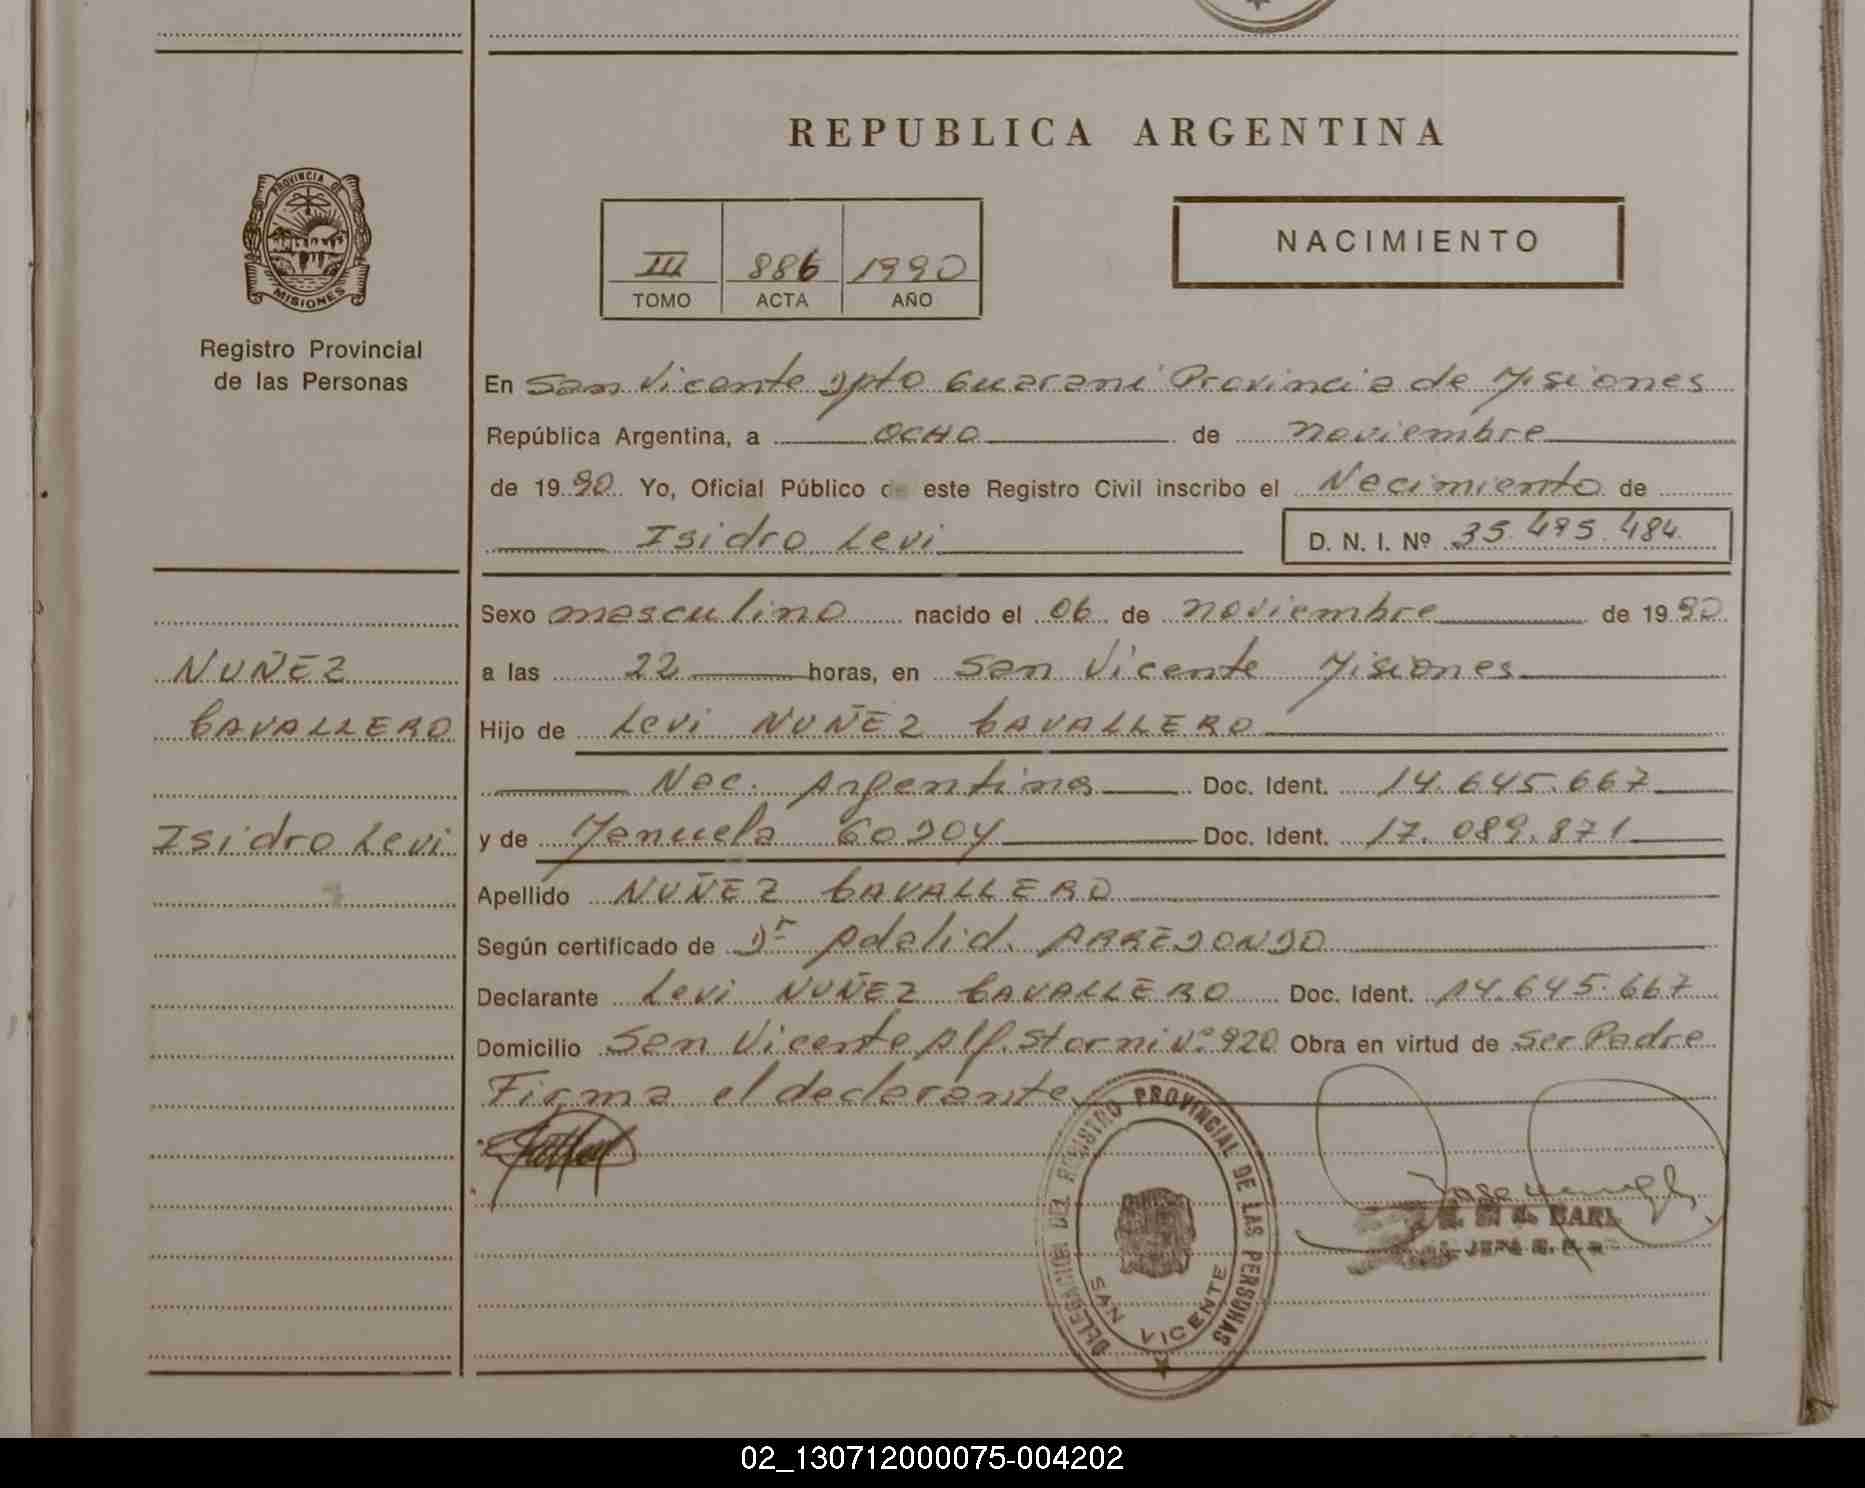 REPUBLICA ARGENTINA
PROVINCIA DE
MISIONES
Registro Provincial
de las Personas
III 886 1990
TOMO ACTA AÑO
NACIMIENTO
En San Vicente Dpto Guarani Provincia de Misiones
República Argentina, a OCHO de noviembre
de 1990 Yo, Oficial Público de este Registro Civil inscribo el Nacimiento de
Isidro Levi
D. N. I. Nº 35.495.484
Sexo masculino nacido el 06 de noviembre de 1990
NUÑEZ
a las 22 horas, en San Vicente Misiones
CAVALLERO
Hijo de Levi NUÑEZ CAVALLERO
Nac. Argentina Doc. Ident. 14.645.667
Isidro Levi
y de Manuela GODOY Doc. Ident. 17.089.871
Apellido NUÑEZ CAVALLERO
Según certificado de Dr Adalid. ARREDONDO
Declarante Levi NUÑEZ CAVALLERO Doc. Ident. 14.645.667
Domicilio San Vicente Alf. Storni Nº 920 Obra en virtud de Ser Padre
Firma el declarante
DELEGACION DEL REGISTRO PROVINCIAL DE LAS PERSONAS
SAN VICENTE
02_130712000075-004202